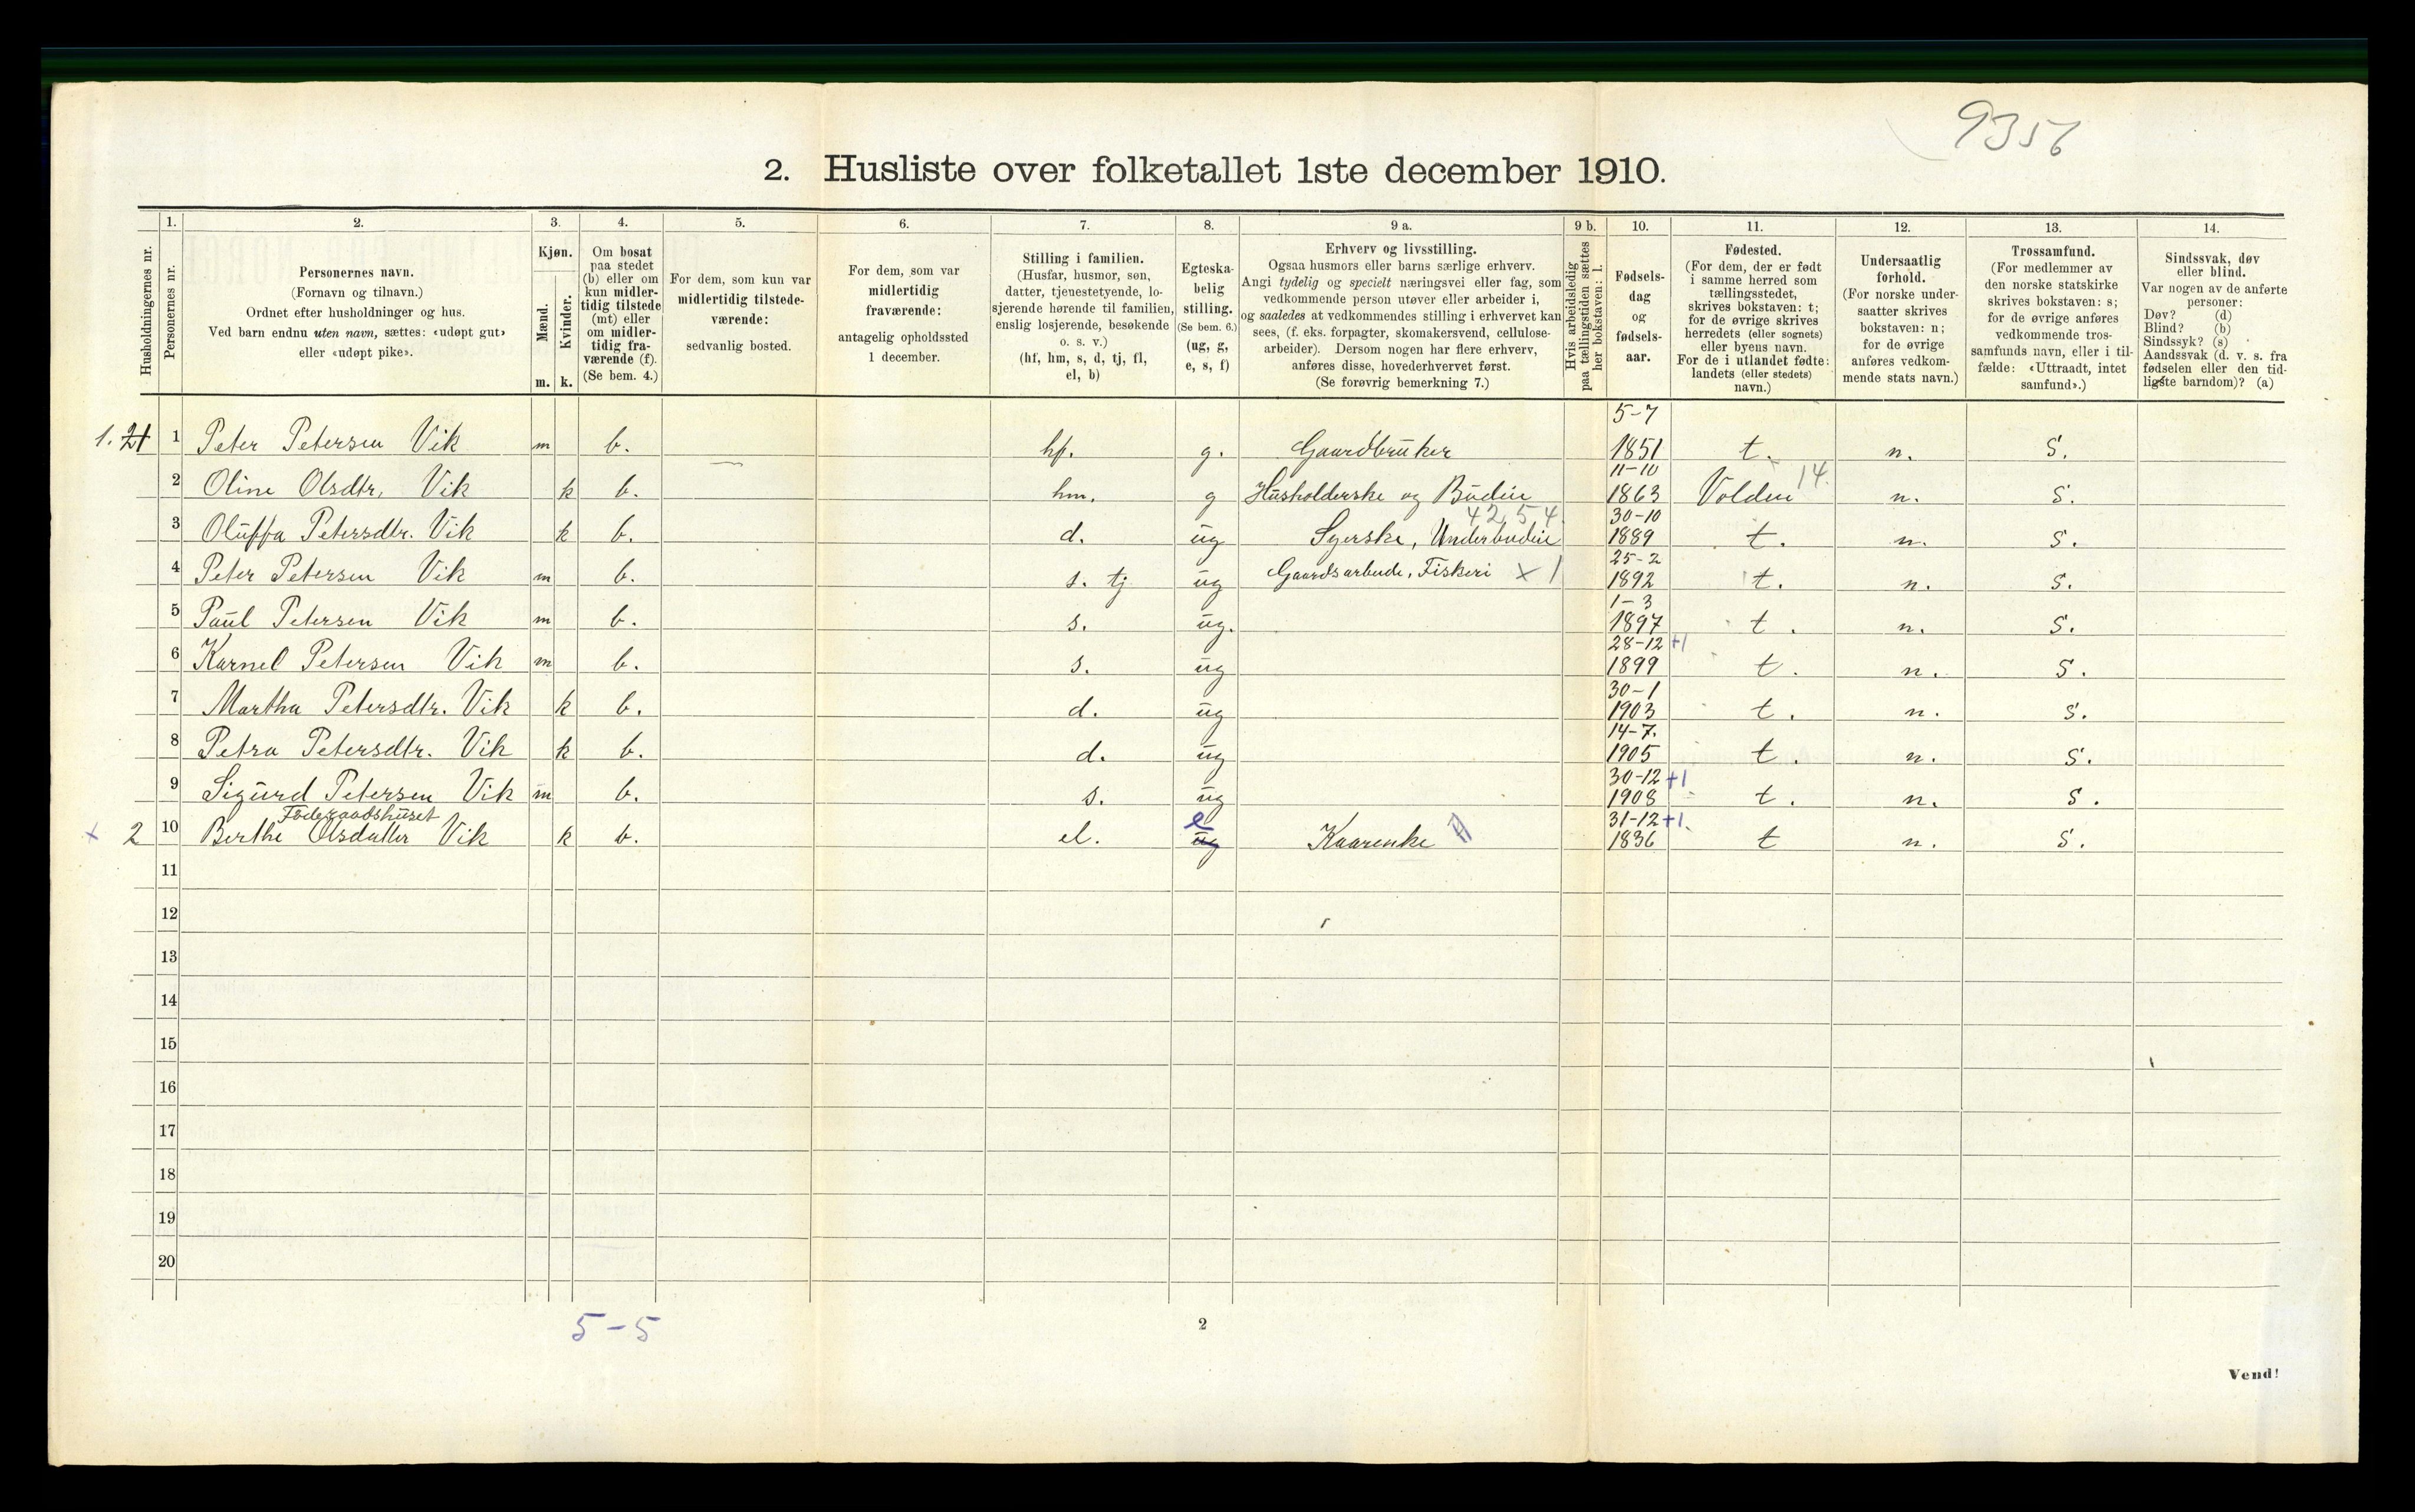 9356
2. Husliste over folketallet 1ste december 1910.
Husholdningernes nr.
1.
Personernes nr.
2.
Personernes navn.
(Fornavn og tilnavn.)
Ordnet efter husholdninger og hus.
Ved barn endnu uten navn, sættes: «udøpt gut»
eller «udøpt pike».
3.
Kjøn.
Mænd.
Kvinder.
m. k.
4.
Om bosat
paa stedet
(b) eller om
kun midler-
tidig tilstede
(mt) eller
om midler-
tidig fra-
værende (f).
(Se bem. 4.)
5.
For dem, som kun var
midlertidig tilstede-
værende:
sedvanlig bosted.
6.
For dem, som var
midlertidig
fraværende:
antagelig opholdssted
1 december.
7.
Stilling i familien.
(Husfar, husmor, søn,
datter, tjenestetyende, lo-
sjerende hørende til familien,
enslig losjerende, besøkende
o. s. v.)
(hf, hm, s, d, tj, fl,
el, b)
8.
Egteska-
belig
stilling.
(Se bem. 6.)
(ug, g,
e, s, f)
9 a.
Erhverv og livsstilling.
Ogsaa husmors eller barns særlige erhverv.
Angi tydelig og specielt næringsvei eller fag, som
vedkommende person utøver eller arbeider i,
og saaledes at vedkommendes stilling i erhvervet kan
sees, (f. eks. forpagter, skomakersvend, cellulose-
arbeider). Dersom nogen har flere erhverv,
anføres disse, hovederhvervet først.
(Se forøvrig bemerkning 7.)
9 b.
Hvis arbeidsledig
paa tællingstiden sættes
her bokstaven: l.
10.
Fødsels-
dag
og
fødsels-
aar.
11.
Fødested.
(For dem, der er født
i samme herred som
tællingsstedet,
skrives bokstaven: t;
for de øvrige skrives
herredets (eller sognets)
eller byens navn.
For de i utlandet fødte:
landets (eller stedets)
navn.)
12.
Undersaatlig
forhold.
(For norske under-
saatter skrives
bokstaven: n;
for de øvrige
anføres vedkom-
mende stats navn.)
13.
Trossamfund.
(For medlemmer av
den norske statskirke
skrives bokstaven: s;
for de øvrige anføres
vedkommende tros-
samfunds navn, eller i til-
fælde: «Uttraadt, intet
samfund».)
14.
Sindssvak, døv
eller blind.
Var nogen av de anførte
personer:
Døv? (d)
Blind? (b)
Sindssyk? (s)
Aandssvak (d. v. s. fra
fødselen eller den tid-
ligste barndom)? (a)
5-7
1. 1 Peter Petersen Vik m b. hf. g. Gaardbruker 1851 t. n. S.
11-10
2 Oline Olsdtr. Vik k b. hm. g Husholderske og Budeie 1863 Volden 14. n. S.
42,54. 30-10
3 Oluffa Petersdtr. Vik k b. d. ug Syerske, Underbudeie 1889 t. n. S.
25-2
4 Peter Petersen Vik m b. s. tj ug Gaardsarbeide, Fiskeri x 1 1892 t. n. S.
1-3
5 Paul Petersen Vik m b. s. ug. 1897 t. n. S.
28-12 +1
6 Karnel Petersen Vik m b. s. ug 1899 t. n. S.
30-1
7 Martha Petersdtr. Vik k b. d. ug 1903 t. n. S.
14-7.
8 Petra Petersdtr. Vik k b. d. ug 1905 t. n. S.
30-12 +1
9 Sigurd Petersen Vik m b. s. ug 1908 t. n. S.
Føderaadshuset e 31-12 +1.
x 2 10 Berthe Olsdatter Vik k b. el. ug Kaarenke 1836 t n. S.
11
12
13
14
15
16
17
18
19
20
5-5
2
Vend!